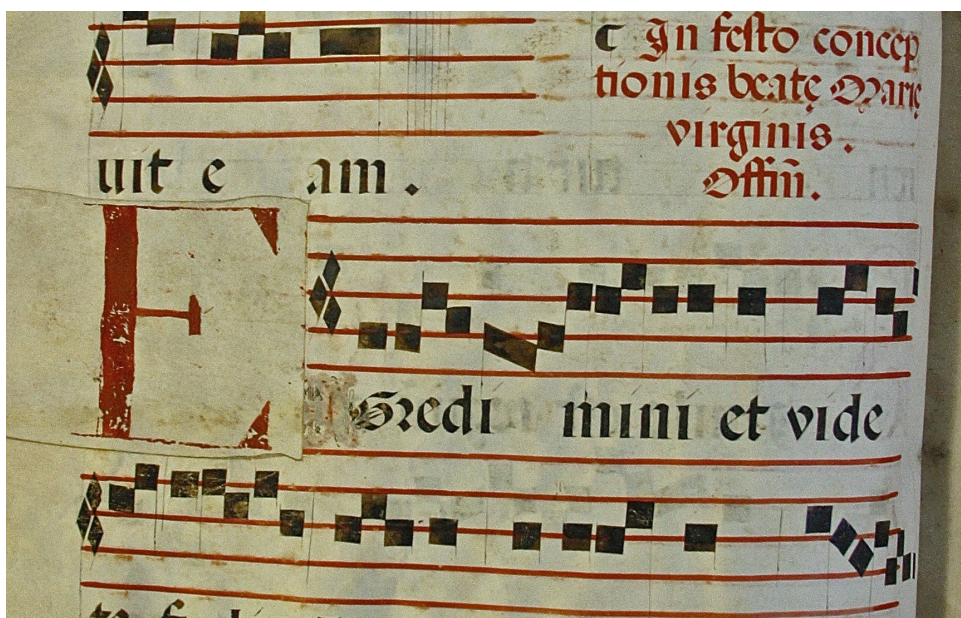 uit e am.
In festo concep
tionis beatę Marię
virginis.
Offm̄.
EGredi mini et vide